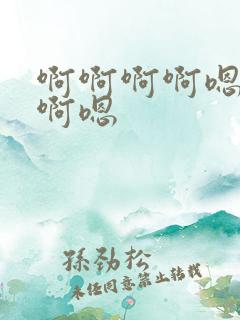 啊啊啊啊嗯
啊嗯
孫劲松
未经同意禁止转载